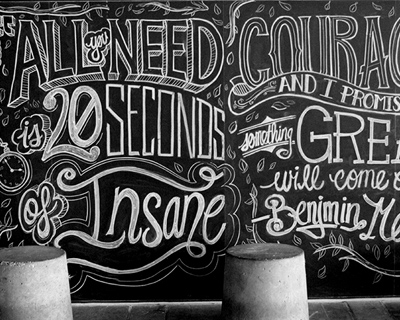 ALL you NEED
is 20 SECONDS
of Insane
COURAG
AND I PROMIS
something GREA
will come o
Benjmin Me